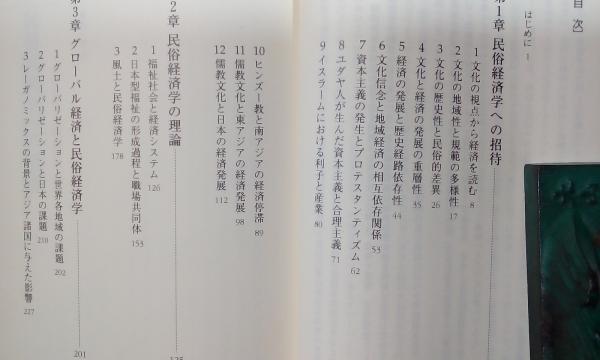 目 次
はじめに 1
第1章 民俗経済学への招待
1 文化の視点から経済を読む 8
2 文化の地域性と規範の多様性 17
3 文化の歴史性と民俗的差異 26
4 文化と経済の発展の重層性 35
5 経済の発展と歴史経路依存性 44
6 文化信念と地域経済の相互依存関係 53
7 資本主義の発生とプロテスタンティズム 62
8 ユダヤ人が生んだ資本主義と合理主義 71
9 イスラームにおける利子と産業 80
10 ヒンズー教と南アジアの経済停滞 89
11 儒教文化と東アジアの経済発展 98
12 儒教文化と日本の経済発展 112
2章 民俗経済学の理論
1 福祉社会と経済システム 126
2 日本型福祉の形成過程と職場共同体 153
3 風土と民俗経済学 178
第3章 グローバル経済と民俗経済学 201
1 グローバリゼーションと世界各地域の課題 202
2 グローバリゼーションと日本の課題 210
3 レーガノミックスの背景とアジア諸国に与えた影響 227